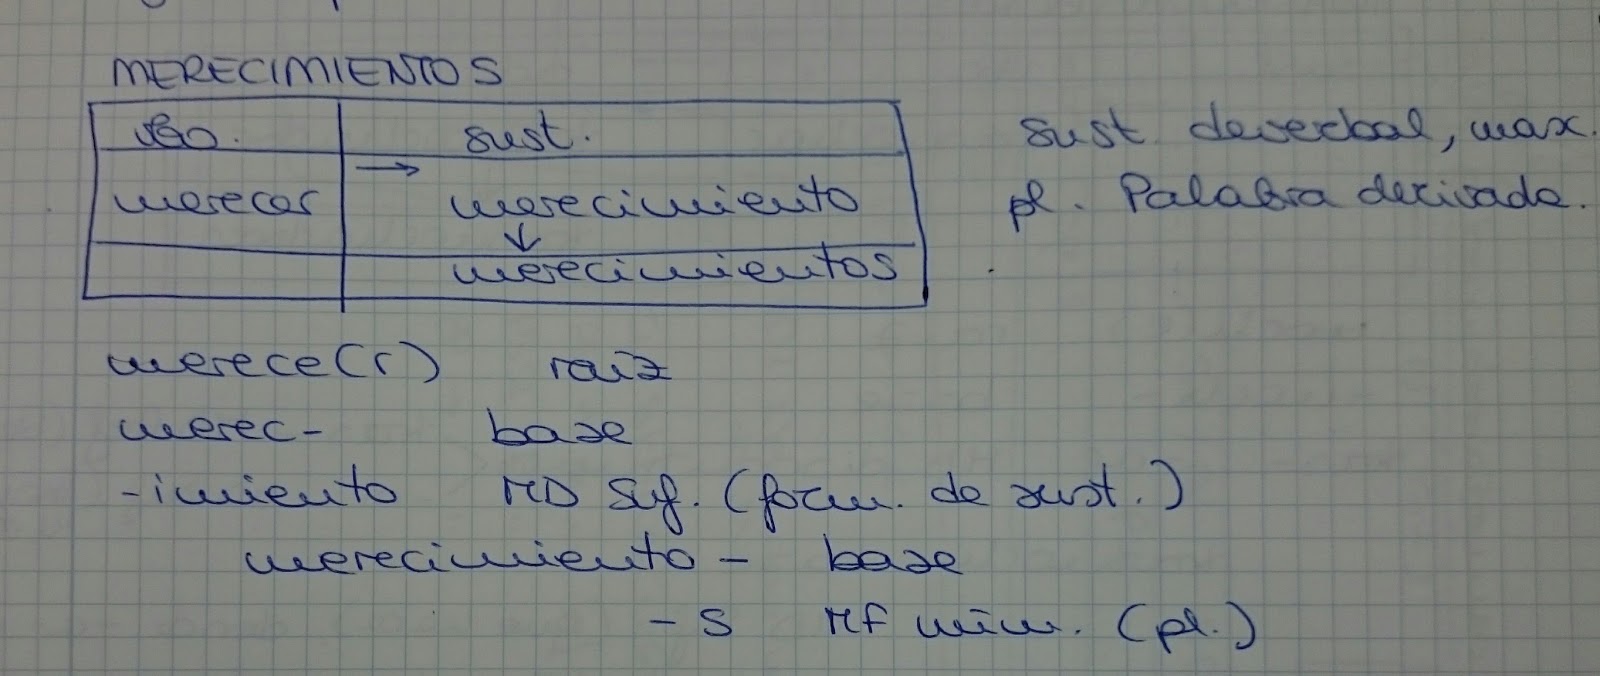 MERECIMIENTOS
vbo. sust.
merecer → merecimiento
↓
merecimientos
sust. deverbal, masc.
pl. Palabra derivada.
merece(r) raíz
merec- base
-imiento MD Suf. (form. de sust.)
merecimiento - base
- S MF núm. (pl.)